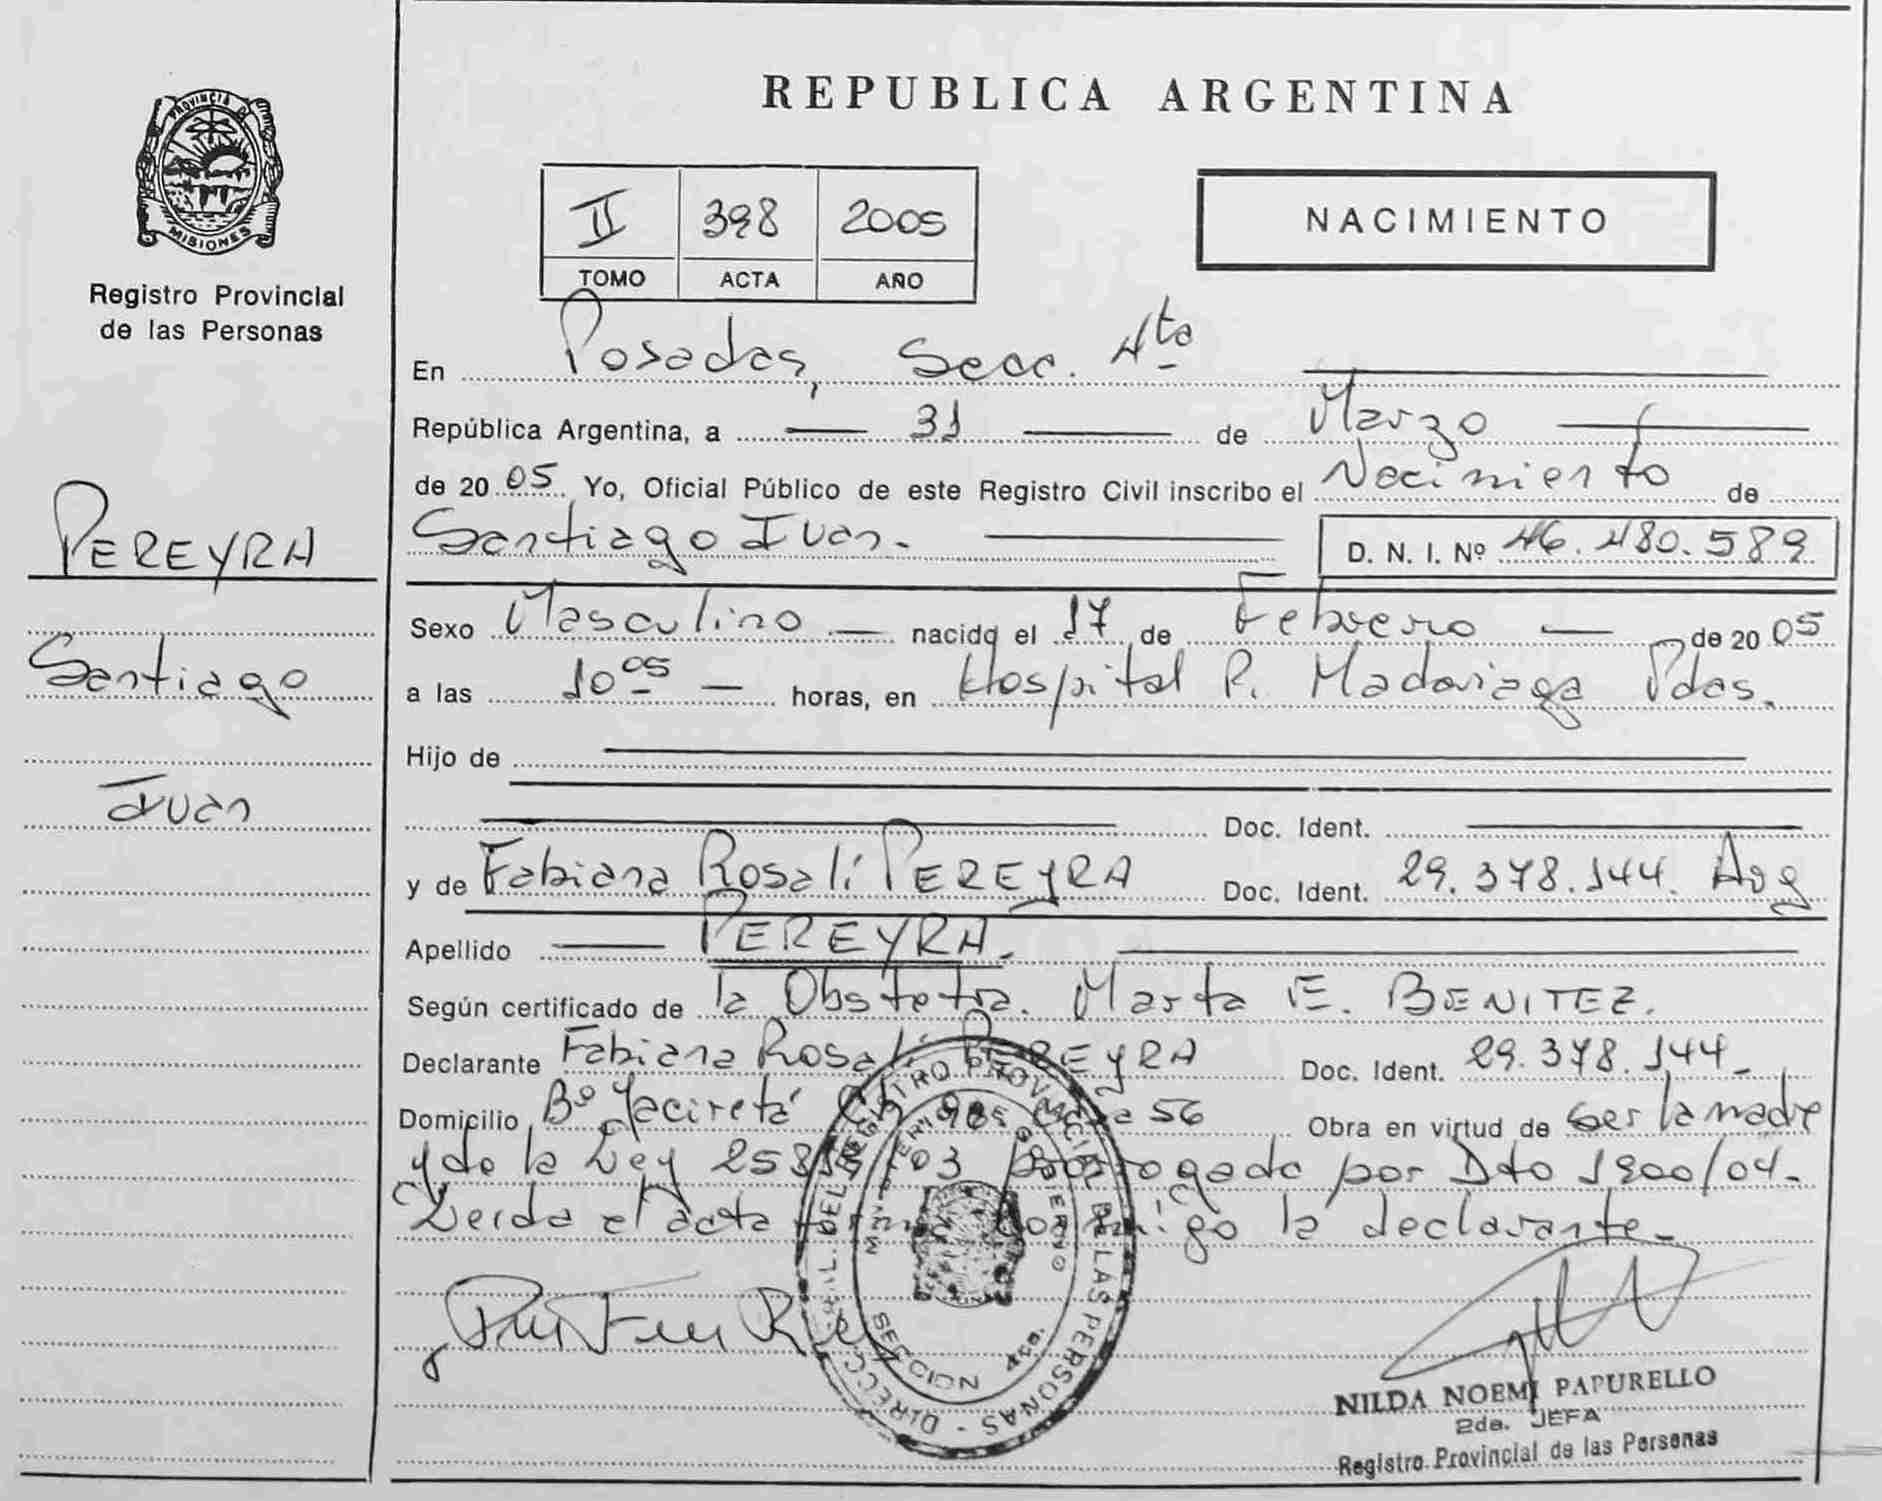 PROVINCIA DE
MISIONES
Registro Provincial
de las Personas
PEREYRA
Santiago
Juan
REPUBLICA ARGENTINA
II 398 2005
TOMO ACTA AÑO
NACIMIENTO
En Posadas, Secc. 4ta
República Argentina, a 31 de Marzo
de 2005 Yo, Oficial Público de este Registro Civil inscribo el Nacimiento de
Santiago Iuan. D. N. I. Nº 46.480.589
Sexo Masculino nacido el 17 de Febrero de 2005
a las 10 05 horas, en Hospital R. Madariaga Pdas.
Hijo de
Doc. Ident.
y de Fabiana Rosalí PEREYRA Doc. Ident. 29.378.144. Arg
Apellido PEREYRA.
Según certificado de la Obstetra. Marta E. BENITEZ.
Declarante Fabiana Rosalí PEREYRA Doc. Ident. 29.378.144
Domicilio Bº Yacireta 56 Obra en virtud de ser la madre
y de la Ley 03 prorrogada por Dto 1900/04.
Leida el acta firma conmigo la declarante.
DIRECC. GRAL. DEL REGISTRO PROVINCIAL DE LAS PERSONAS
MINISTERIO DE GOBIERNO
SECCION 4ta.
NILDA NOEMI PAPURELLO
2da. JEFA
Registro Provincial de las Personas